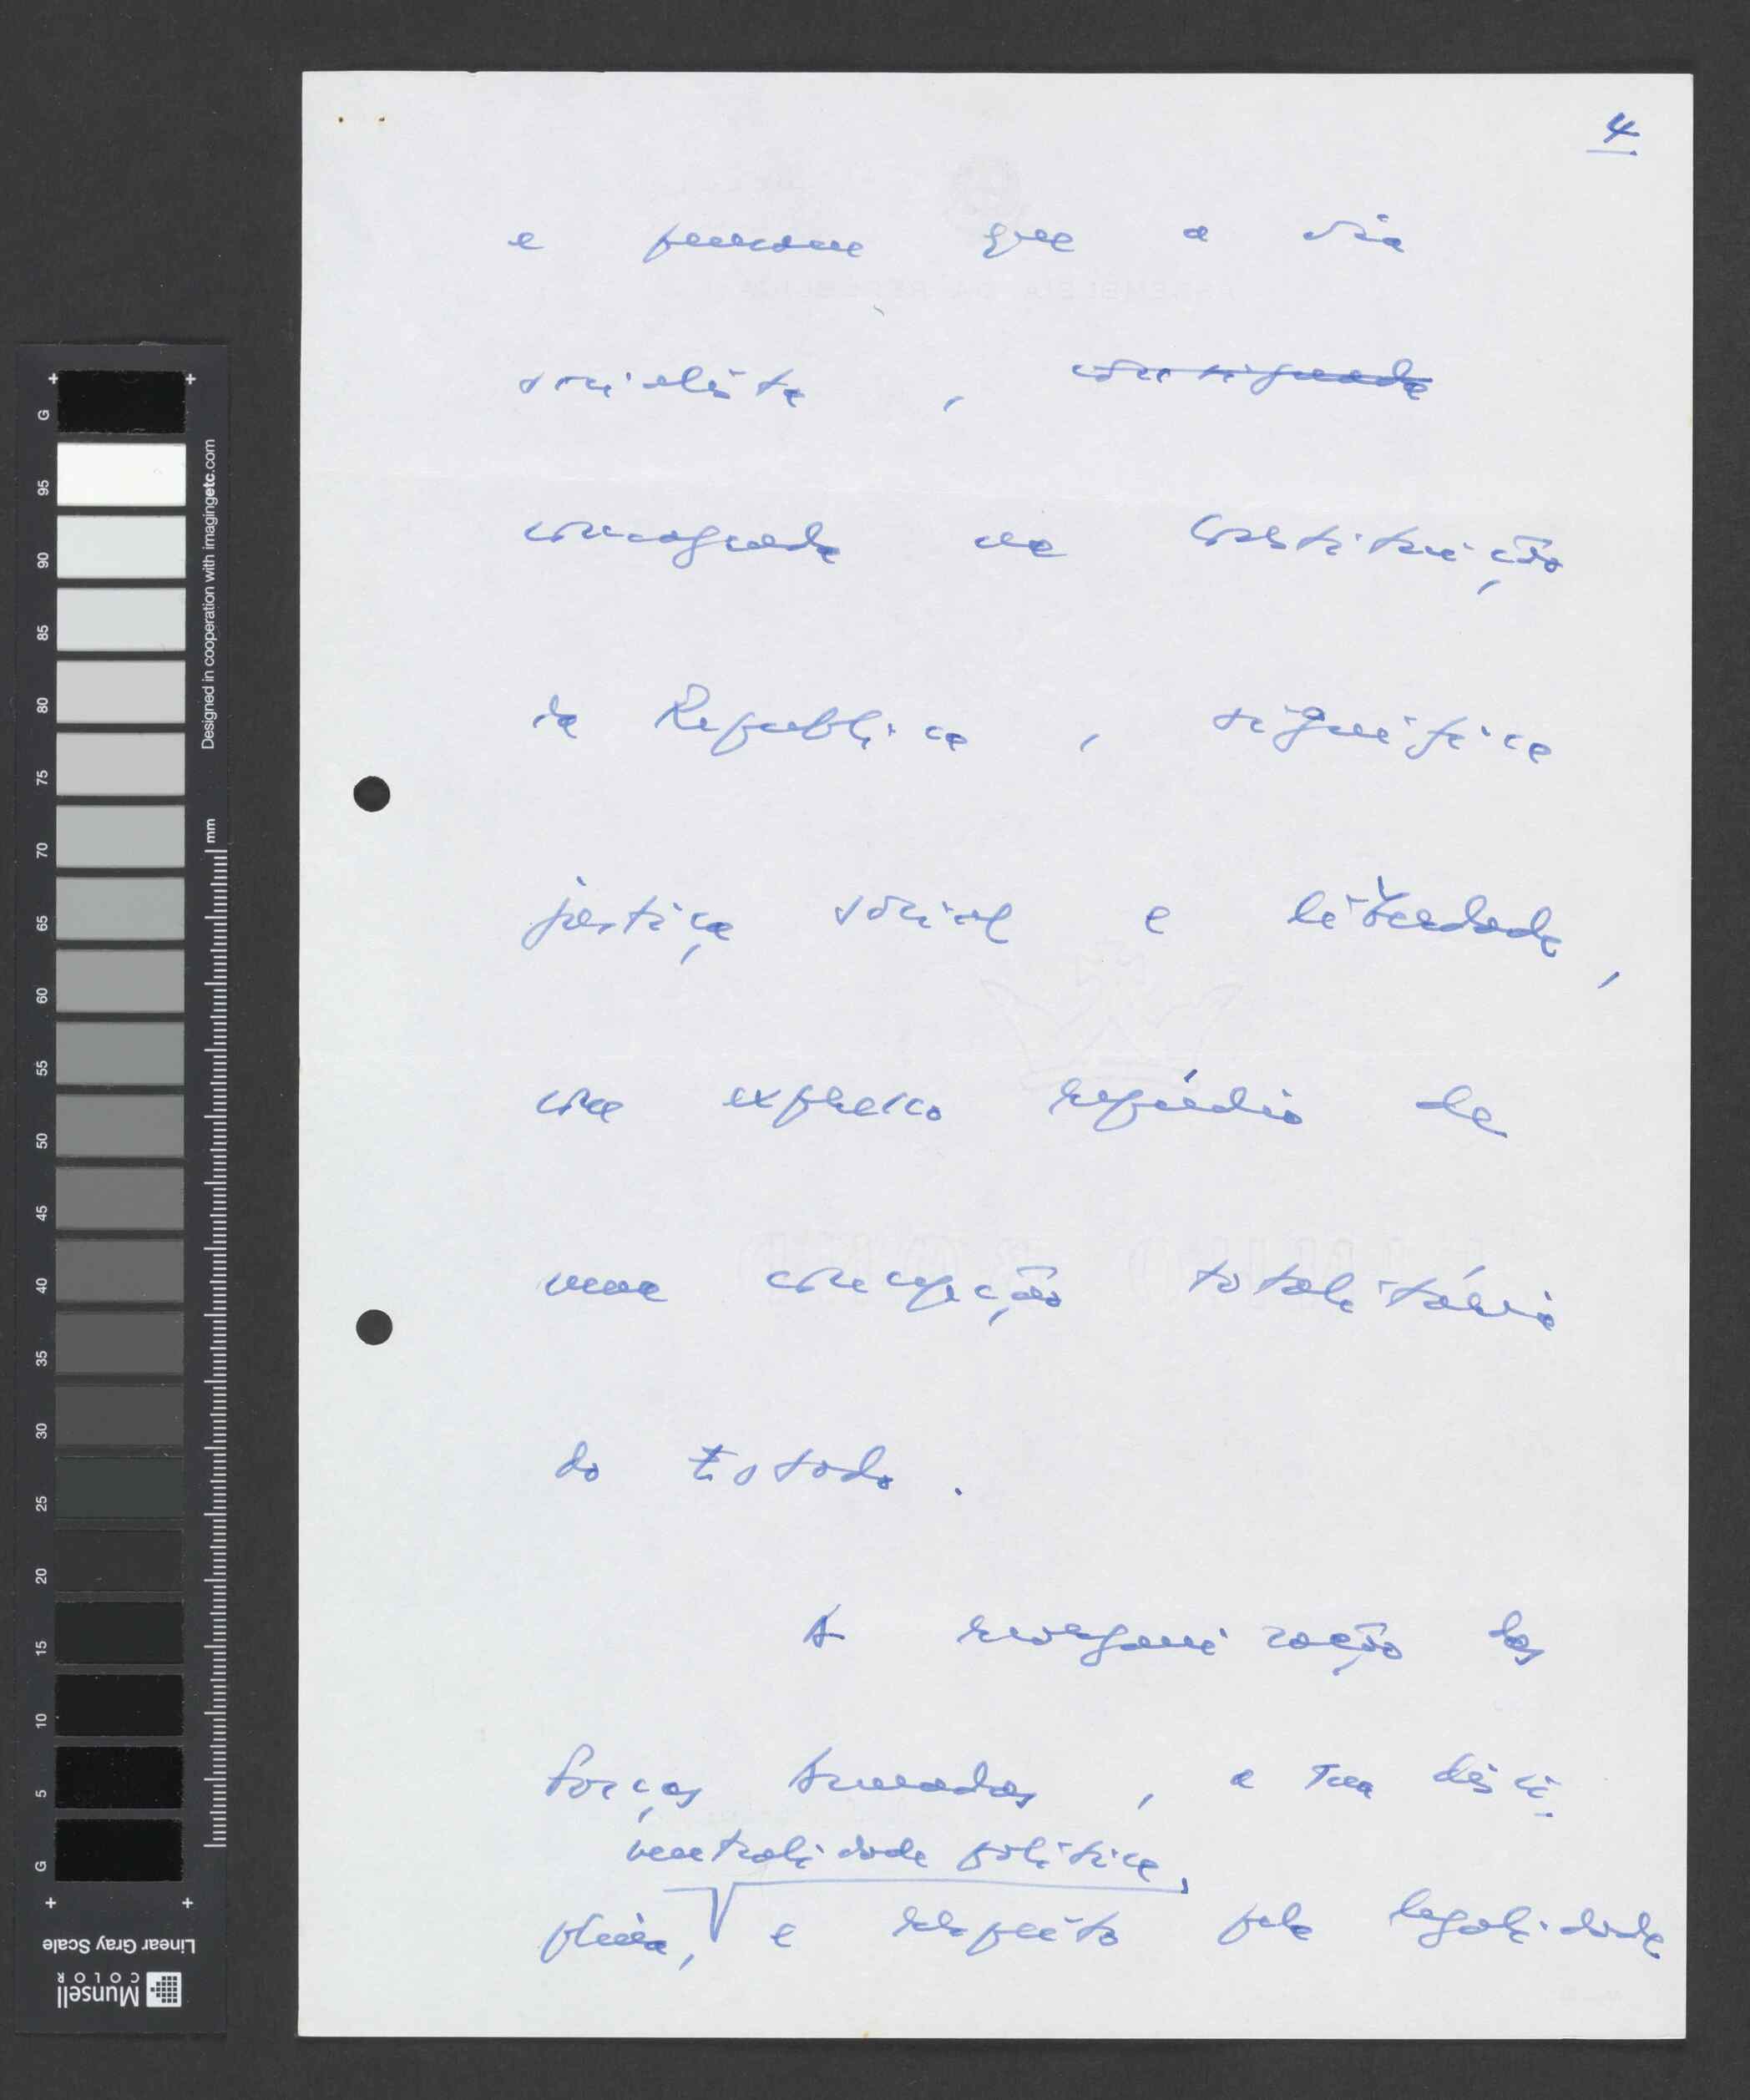 4
e pensam que a via
socialista, consignada
consagrada na Constituição
da Republica, significa
justiça social e liberdade,
com expresso repúdio de
uma concepção totalitária
do Estado.
A reorganização das
Forças Armadas, a sua disci-
neutralidade política,
plina, e respeito pela legalidade
G
95
90
85
80
75
70
65
60
55
50
45
40
35
30
25
20
15
10
5
G
Designed in cooperation with imagingetc.com
mm
Linear Gray Scale
Munsell
COLOR